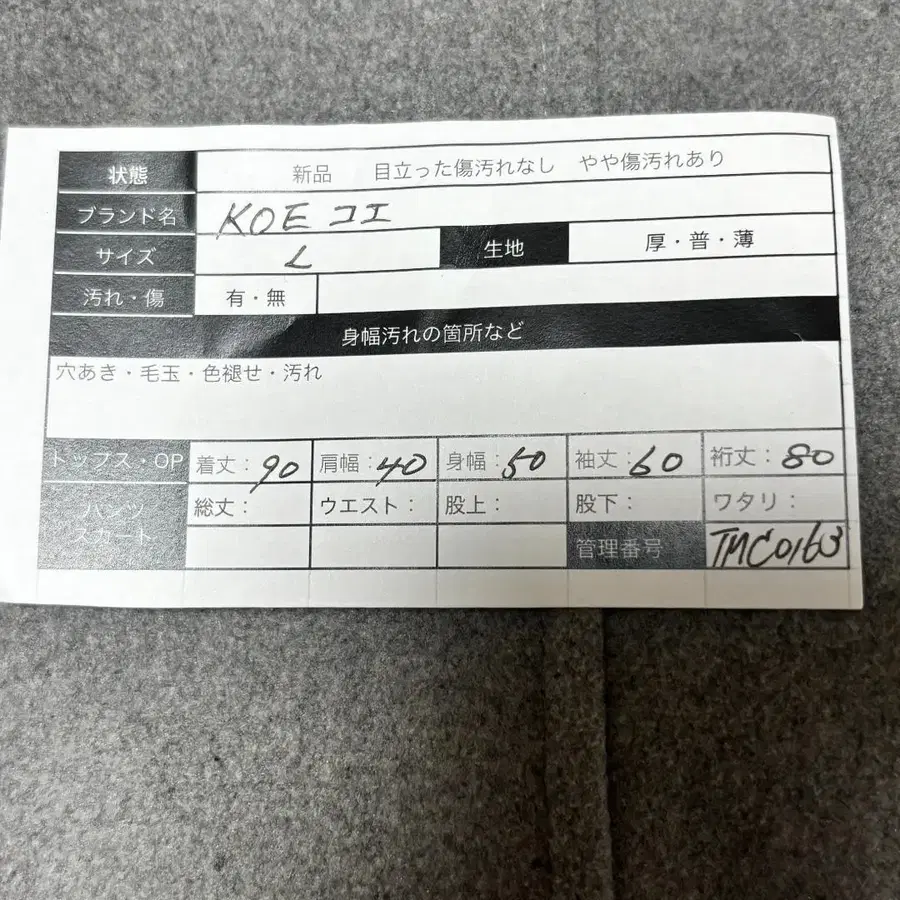 状態 新品 目立った傷汚れなし やや傷汚れあり
ブランド名 KOE コエ
サイズ L 生地 厚・普・薄
汚れ・傷 有・無
身幅汚れの箇所など
穴あき・毛玉・色褪せ・汚れ
トップス・OP 着丈：90 肩幅：40 身幅：50 袖丈：60 裄丈：80
パンツ 総丈： ウエスト： 股上： 股下： ワタリ：
スカート 管理番号 TMC0163